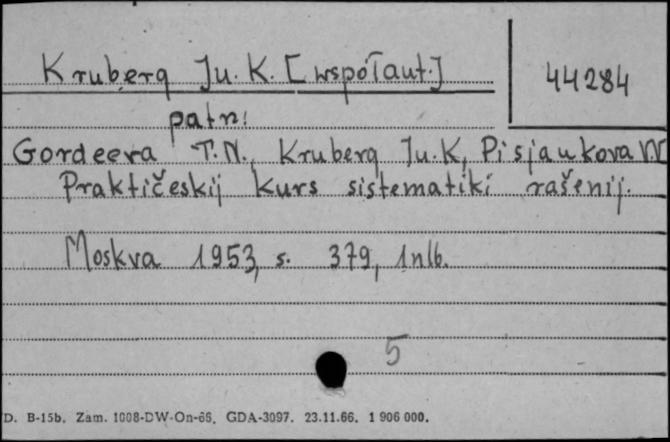 Kruberg Ju. K. [współaut.]
44284
patrz:
Gordeeva T.N., Kruberg Ju.K., Pisjaukova VV
Praktičeskij kurs sistematiki rašenij.
Moskva 1953, s. 379, 1nlb.
5
D. B-15b. Zam. 1008-DW-On-66. GDA-3097. 23.11.66. 1 906 000.